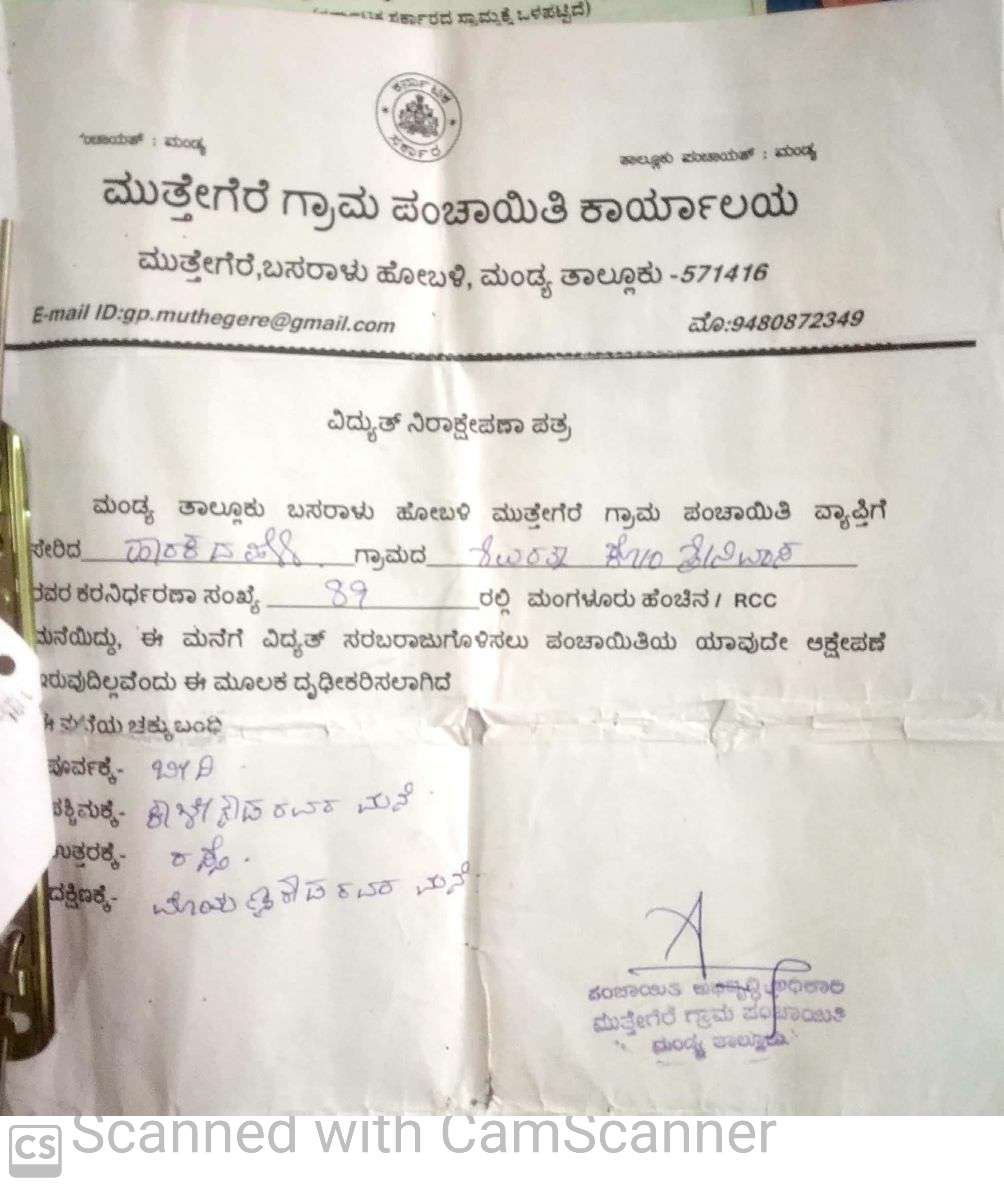 ಸರ್ಕಾರದ ಸ್ವಾಮ್ಯಕ್ಕೆ ಒಳಪಟ್ಟಿದೆ)
ಕರ್ನಾಟಕ
ಸರ್ಕಾರ
ಂಚಾಯತ್ : ಮಂಡ್ಯ
ತಾಲ್ಲೂಕು ಪಂಚಾಯತ್ : ಮಂಡ್ಯ
ಮುತ್ತೇಗೆರೆ ಗ್ರಾಮ ಪಂಚಾಯಿತಿ ಕಾರ್ಯಾಲಯ
ಮುತ್ತೇಗೆರೆ,ಬಸರಾಳು ಹೋಬಳಿ, ಮಂಡ್ಯ ತಾಲ್ಲೂಕು -571416
E-mail ID:gp.muthegere@gmail.com
ಮೊ:9480872349
ವಿದ್ಯುತ್ ನಿರಾಕ್ಷೇಪಣಾ ಪತ್ರ
ಮಂಡ್ಯ ತಾಲ್ಲೂಕು ಬಸರಾಳು ಹೋಬಳಿ ಮುತ್ತೇಗೆರೆ ಗ್ರಾಮ ಪಂಚಾಯಿತಿ ವ್ಯಾಪ್ತಿಗೆ
ಸೇರಿದ ಗ್ರಾಮದ
ರವರ ಕರನಿರ್ಧರಣಾ ಸಂಖ್ಯೆ 89 ರಲ್ಲಿ ಮಂಗಳೂರು ಹೆಂಚಿನ / RCC
ಮನೆಯಿದ್ದು, ಈ ಮನೆಗೆ ವಿದ್ಯತ್ ಸರಬರಾಜುಗೊಳಿಸಲು ಪಂಚಾಯಿತಿಯ ಯಾವುದೇ ಆಕ್ಷೇಪಣೆ
ಇರುವುದಿಲ್ಲವೆಂದು ಈ ಮೂಲಕ ದೃಢೀಕರಿಸಲಾಗಿದೆ
ಈ ಮನೆಯ ಚಕ್ಕುಬಂಧಿ
ಪೂರ್ವಕ್ಕೆ- ಬೀದಿ
ಪಶ್ಚಿಮಕ್ಕೆ- ಕಾಳೇಗೌಡರವರ ಮನೆ
ಉತ್ತರಕ್ಕೆ- ರಸ್ತೆ.
ದಕ್ಷಿಣಕ್ಕೆ- ರವರ ಮನೆ
ಪಂಚಾಯಿತಿ ಅಭಿವೃದ್ಧಿ ಅಧಿಕಾರಿ
ಮುತ್ತೇಗೆರೆ ಗ್ರಾಮ ಪಂಚಾಯಿತಿ
ಮಂಡ್ಯ ತಾಲ್ಲೂಕು.
CS Scanned with CamScanner